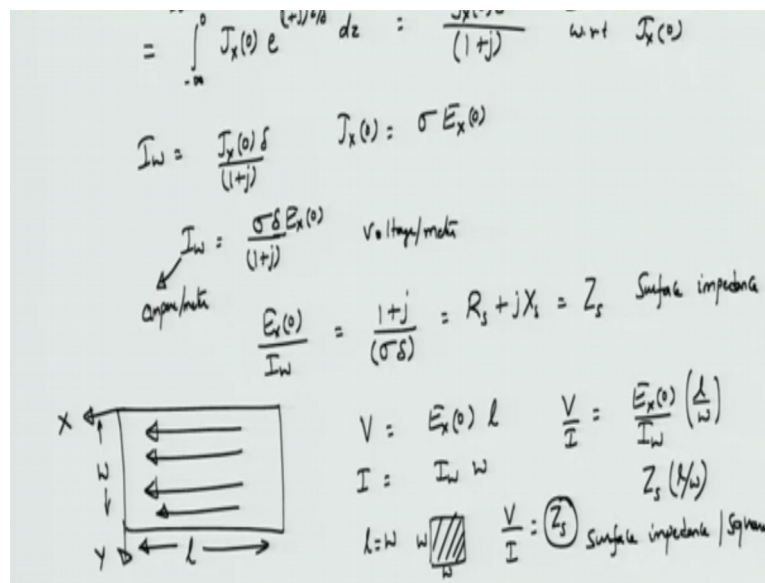 = ∫_{-∞}^{0} J_x(0) e^{(1+j)z/δ} dz = J_x(0)δ / (1+j) w.r.t J_x(0)
I_w = J_x(0) δ / (1+j) J_x(0) = σ E_x(0)
I_w = σδ E_x(0) / (1+j) Voltage/meter
ampere/meter
E_x(0) / I_w = 1+j / (σδ) = R_s + jX_s = Z_s Surface impedance
X
W
Y l
V = E_x(0) l V/I = E_x(0) / I_w (l/w)
I = I_w w Z_s (l/w)
l=w w w V/I = Z_s Surface impedance / Square